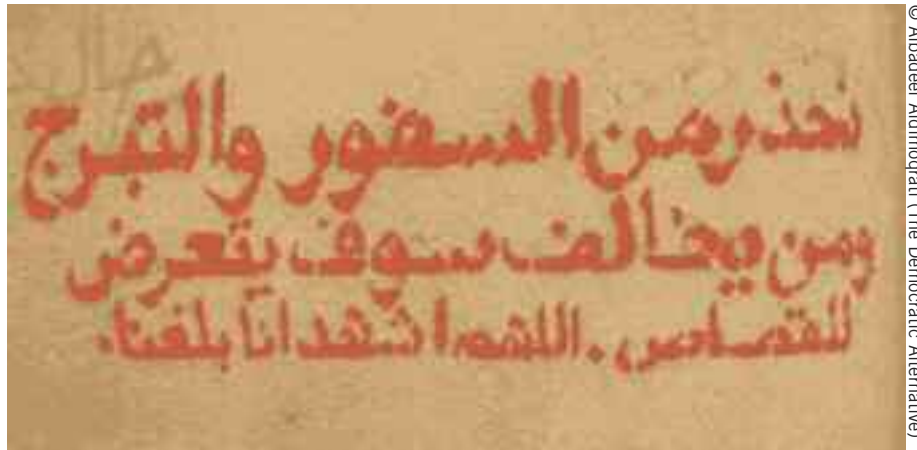 نحذر من السفور والتبرج
ومن يخالف سوف يتعرض
للقصاص. اللهم اشهد انا بلغنا.
© Albadeel Aldimoqrati (The Democratic Alternative)